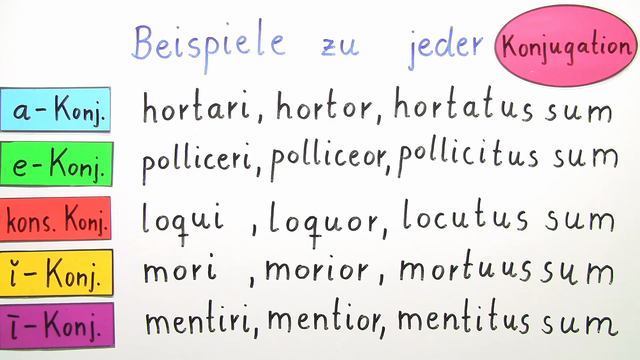 Beispiele zu jeder Konjugation
a-Konj. hortari, hortor, hortatus sum
e-Konj. polliceri, polliceor, pollicitus sum
kons. Konj. loqui , loquor, locutus sum
ĭ-Konj. mori , morior, mortuus sum
ī-Konj. mentiri, mentior, mentitus sum